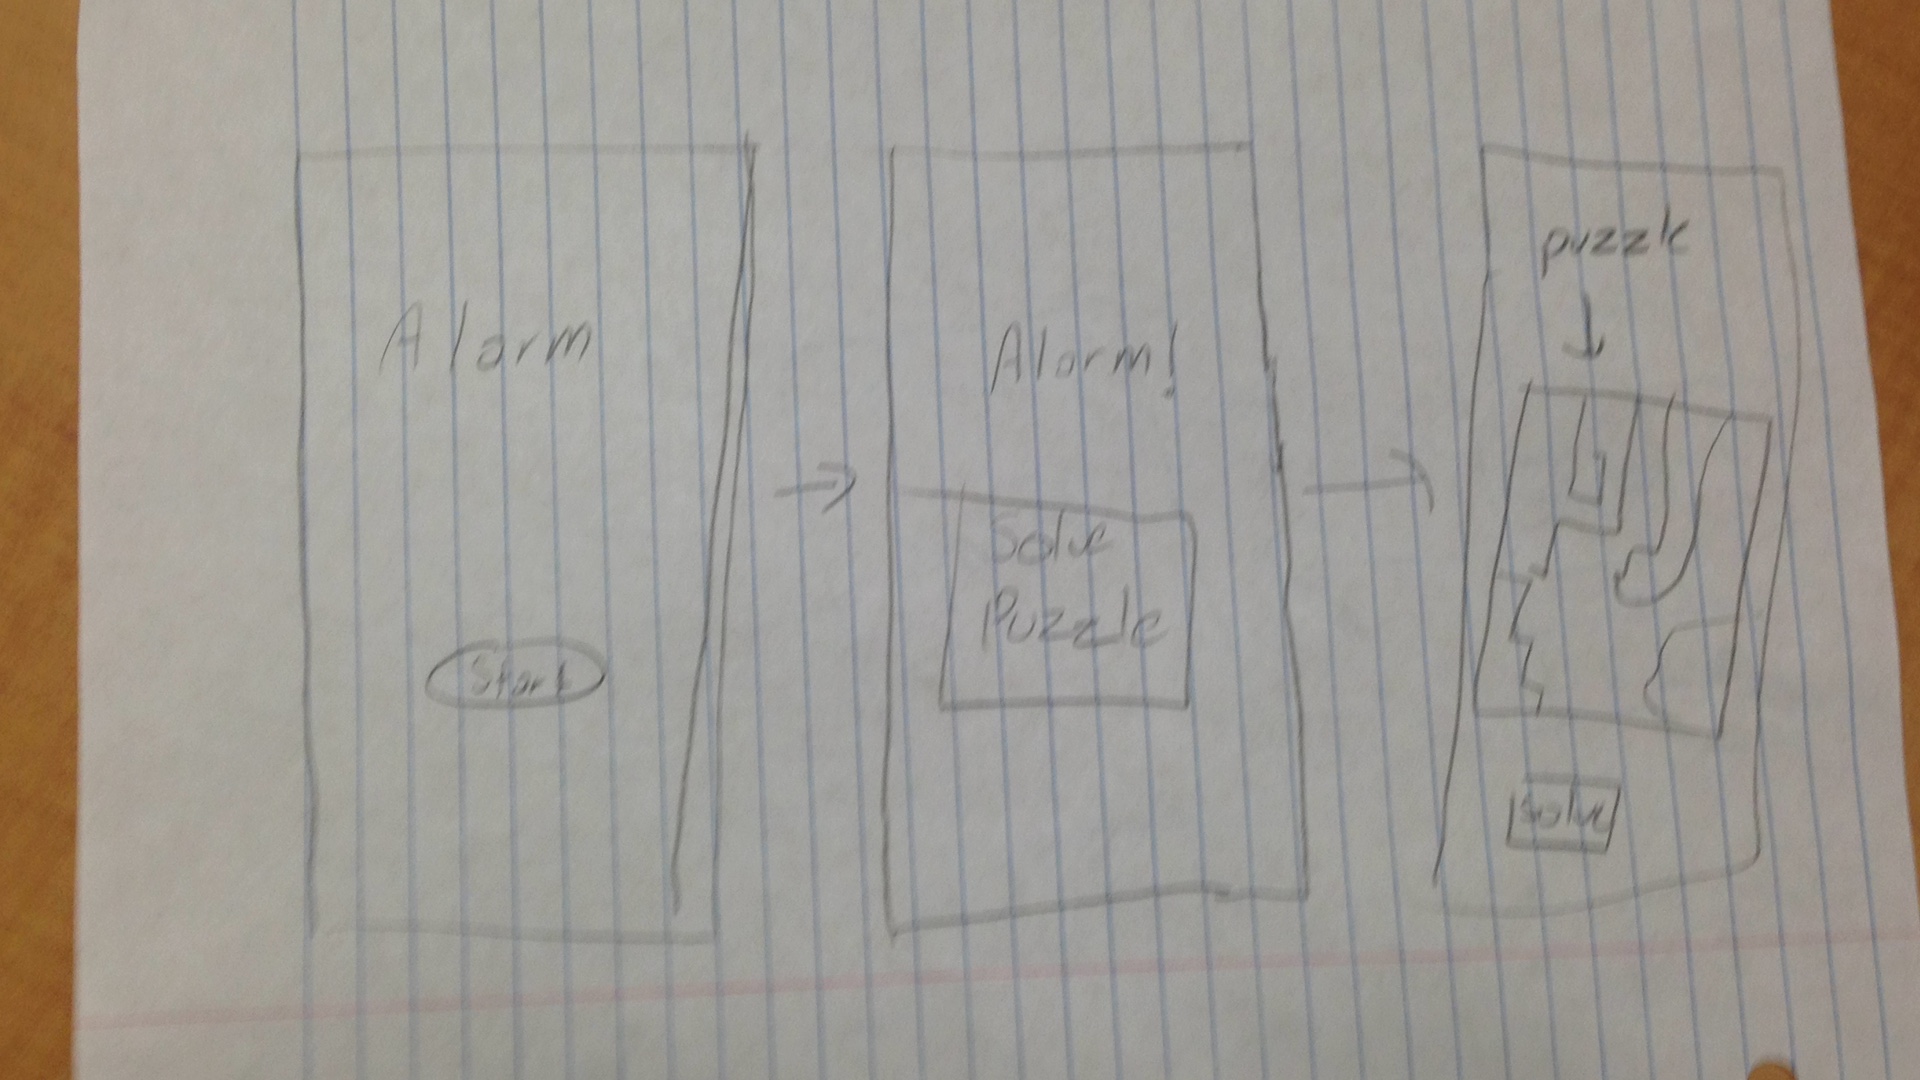 Alarm
Start
Alarm!
Solve
Puzzle
puzzle
Solve